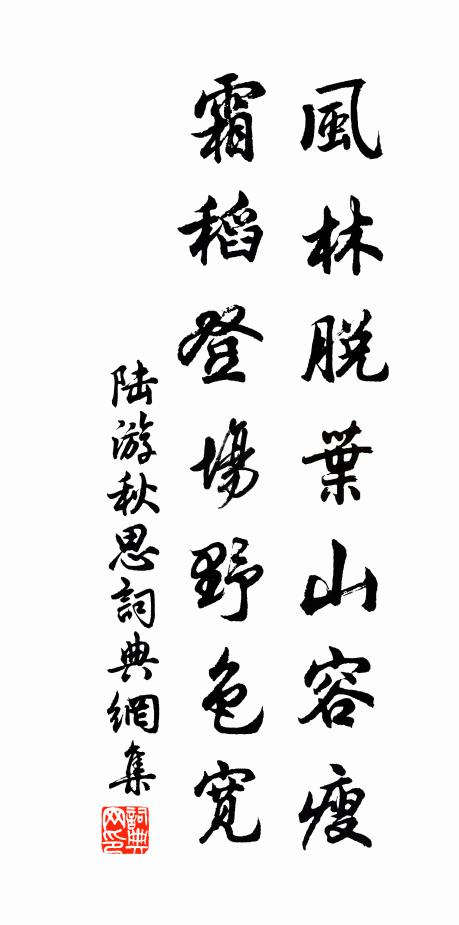 風林脱葉山容瘦
霜稻登場野色寬
陆游秋思詞典網集
詞典
网印